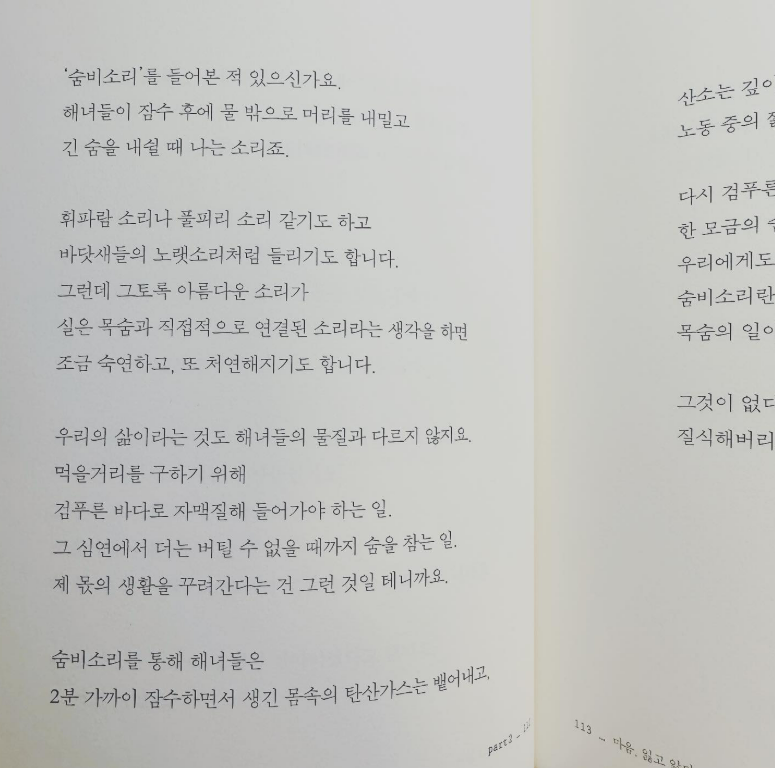 ‘숨비소리’를 들어본 적 있으신가요.
해녀들이 잠수 후에 물 밖으로 머리를 내밀고
긴 숨을 내쉴 때 나는 소리죠.
휘파람 소리나 풀피리 소리 같기도 하고
바닷새들의 노랫소리처럼 들리기도 합니다.
그런데 그토록 아름다운 소리가
실은 목숨과 직접적으로 연결된 소리라는 생각을 하면
조금 숙연하고, 또 처연해지기도 합니다.
우리의 삶이라는 것도 해녀들의 물질과 다르지 않지요.
먹을거리를 구하기 위해
검푸른 바다로 자맥질해 들어가야 하는 일.
그 심연에서 더는 버틸 수 없을 때까지 숨을 참는 일.
제 몫의 생활을 꾸려간다는 건 그런 것일 테니까요.
숨비소리를 통해 해녀들은
2분 가까이 잠수하면서 생긴 몸속의 탄산가스는 뱉어내고,
part2 –
산소는
노동 중의
다시 검푸른
한 모금의
우리에게도
숨비소리란
목숨의 일이
그것이
질식해버리
113 – 마음, 잃고